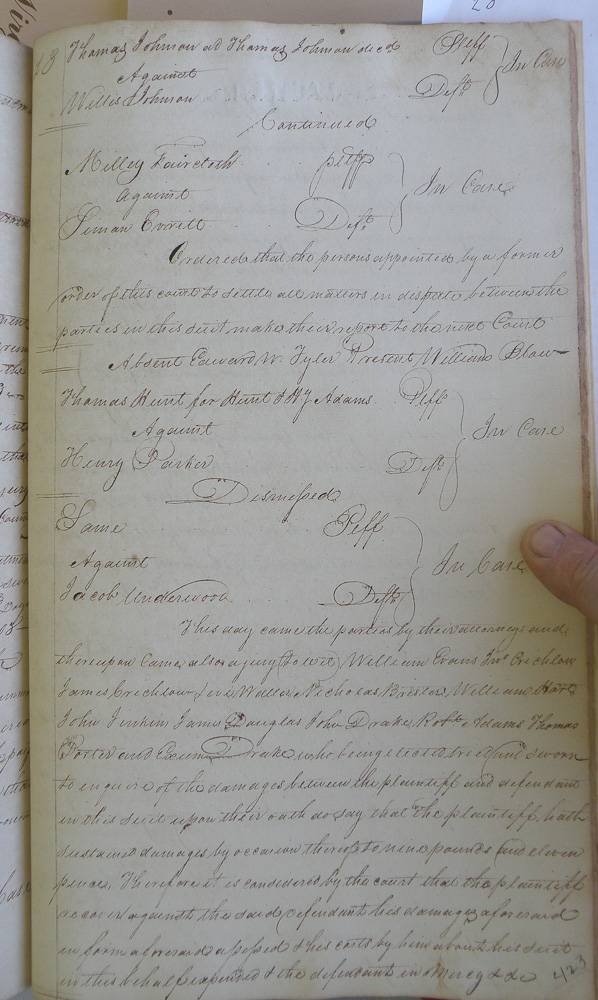 Thomas Johnson ad Thomas Johnson decd Plff
Against In Case
Willis Johnson Deft
Continued
Milley Faircloth pltff
against In Case
Simon Everitt Deft
Ordered that the persons appointed by a former
order of this court to settle all matters in dispute between the
parties in this suit make their report to the next Court
Absent Edward W. Tyler Present William Blow
Thomas Hunt for Hunt & HJ Adams Plff
Against In Case
Henry Parker Deft
Dismissed
Same Plff
Against In Case
Jacob Underwood Deft
This day came the parties by their attorneys and
thereupon Came also a jury (Towit) William Evans Jno Crichlow
James Crichlow Waller Nicholas William Hart
John Jenkins James Douglas John Drake Robt Adams Thomas
Porter and Exum Drake who being elected tried and sworn
to enquire of the damages between the plaintiff and defendant
in this suit upon their oath do say that the plaintiff hath
sustained damages by occasion thereof to nine pounds and eleven
pence. Therefore it is considered by the court that the plaintiff
recover against the said defendant his damages aforesaid
in form aforesaid assessed & his costs by him about his suit
in this behalf expended & the defendant in Mercy &c
423